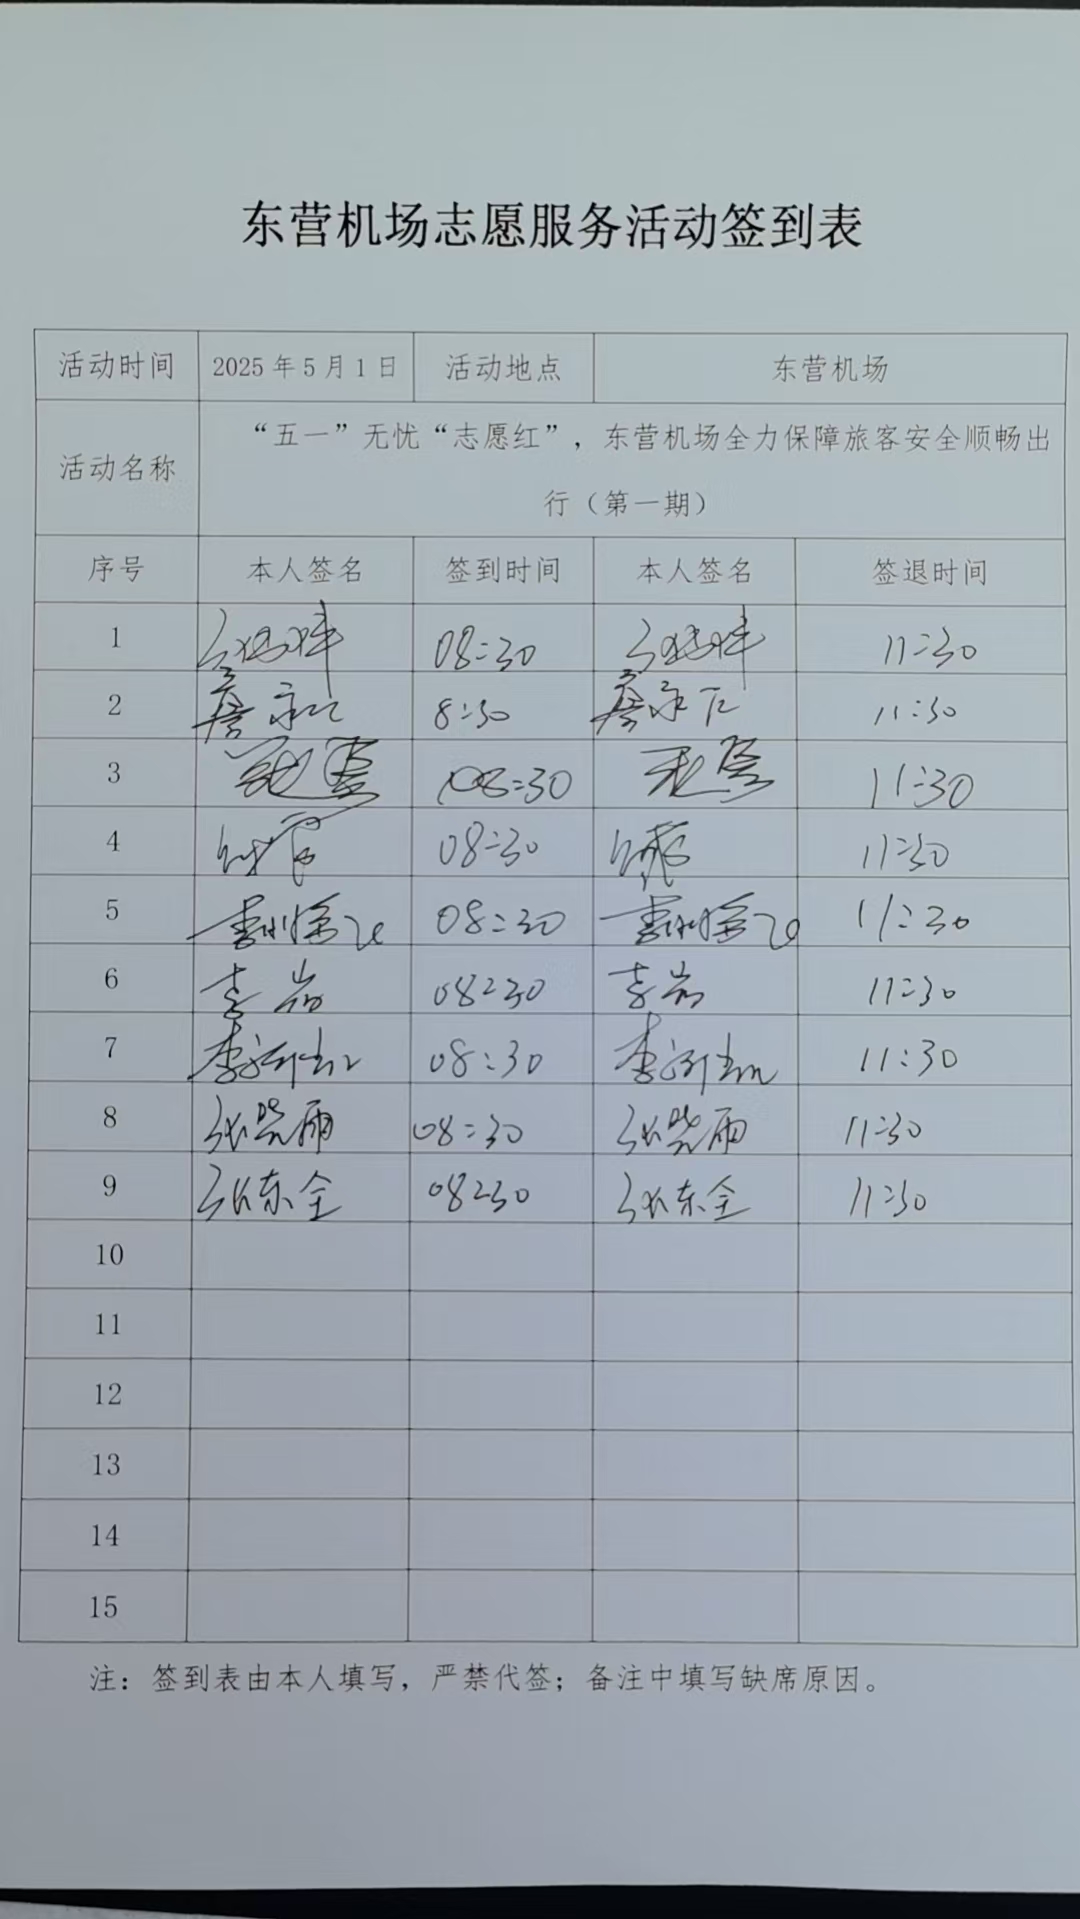 东营机场志愿服务活动签到表
活动时间 2025年5月1日 活动地点 东营机场
活动名称 “五一”无忧“志愿红”，东营机场全力保障旅客安全顺畅出
行（第一期）
序号 本人签名 签到时间 本人签名 签退时间
1 08:30 11:30
2 8:30 11:30
3 08:30 11:30
4 08:30 11:30
5 08:30 11:30
6 李岩 08:30 李岩 11:30
7 李 08:30 李 11:30
8 张晓雨 08:30 张晓雨 11:30
9 张东全 08:30 张东全 11:30
10
11
12
13
14
15
注：签到表由本人填写，严禁代签；备注中填写缺席原因。